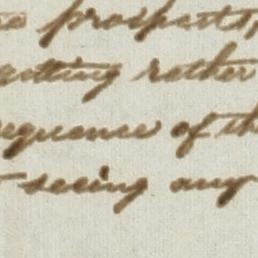 prospects,
getting rather
sequence of th
seeing any